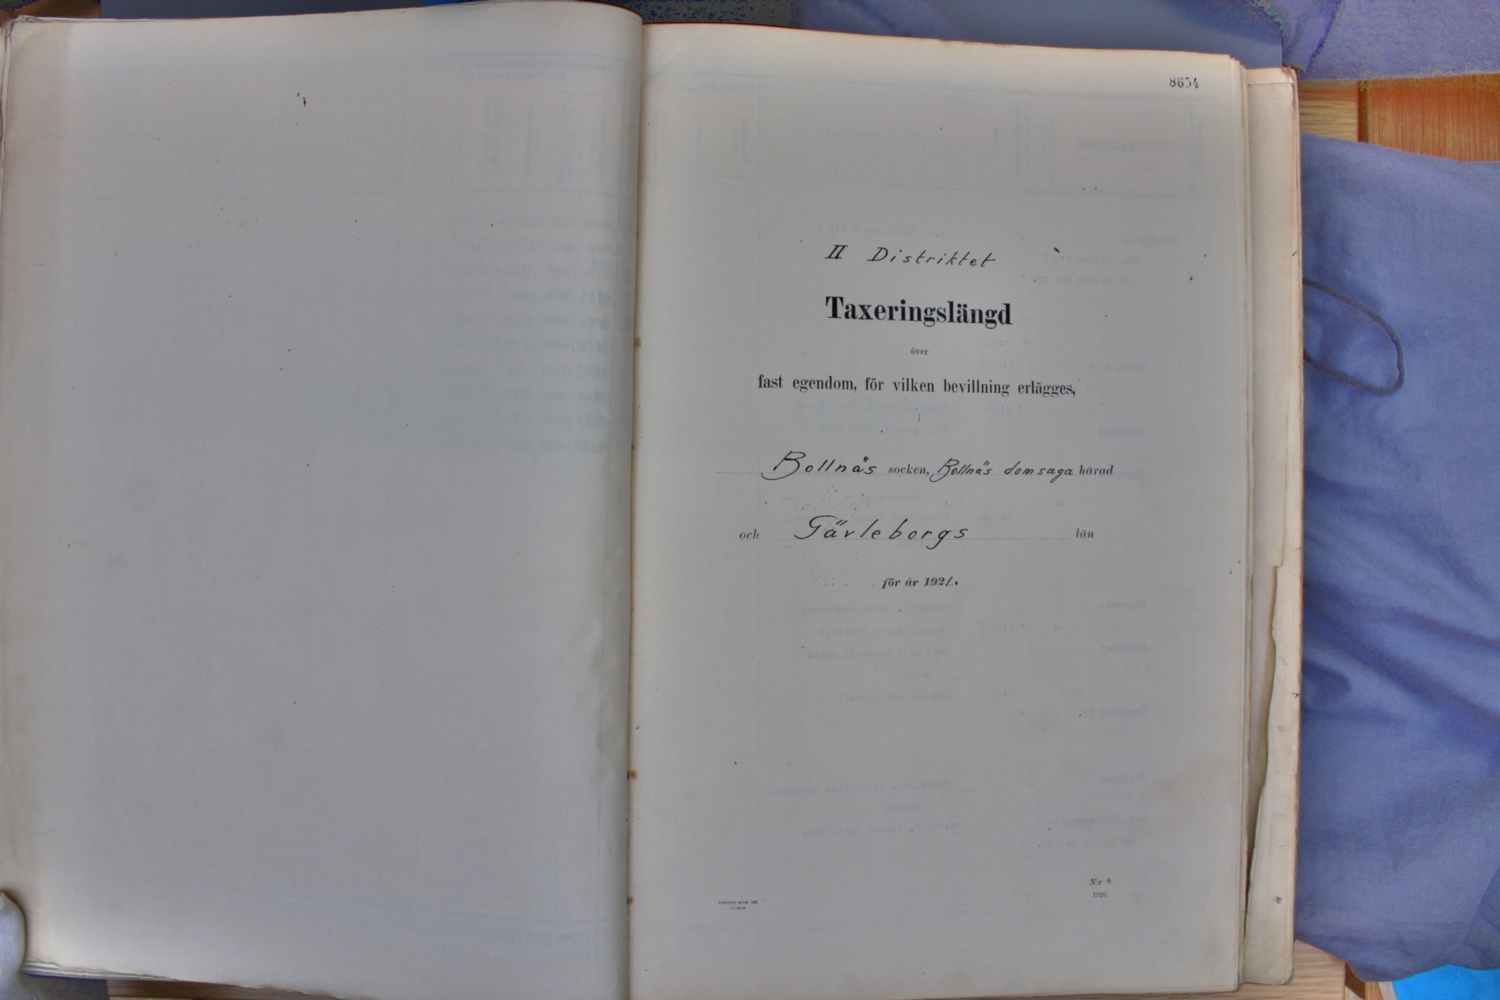 8654
II Distriktet
Taxeringslängd
över
fast egendom, för vilken bevillning erlägges,
Bollnäs socken, Bollnäs domsaga härad
och Gävleborgs län
för år 1921.
N:r 9.
1920.